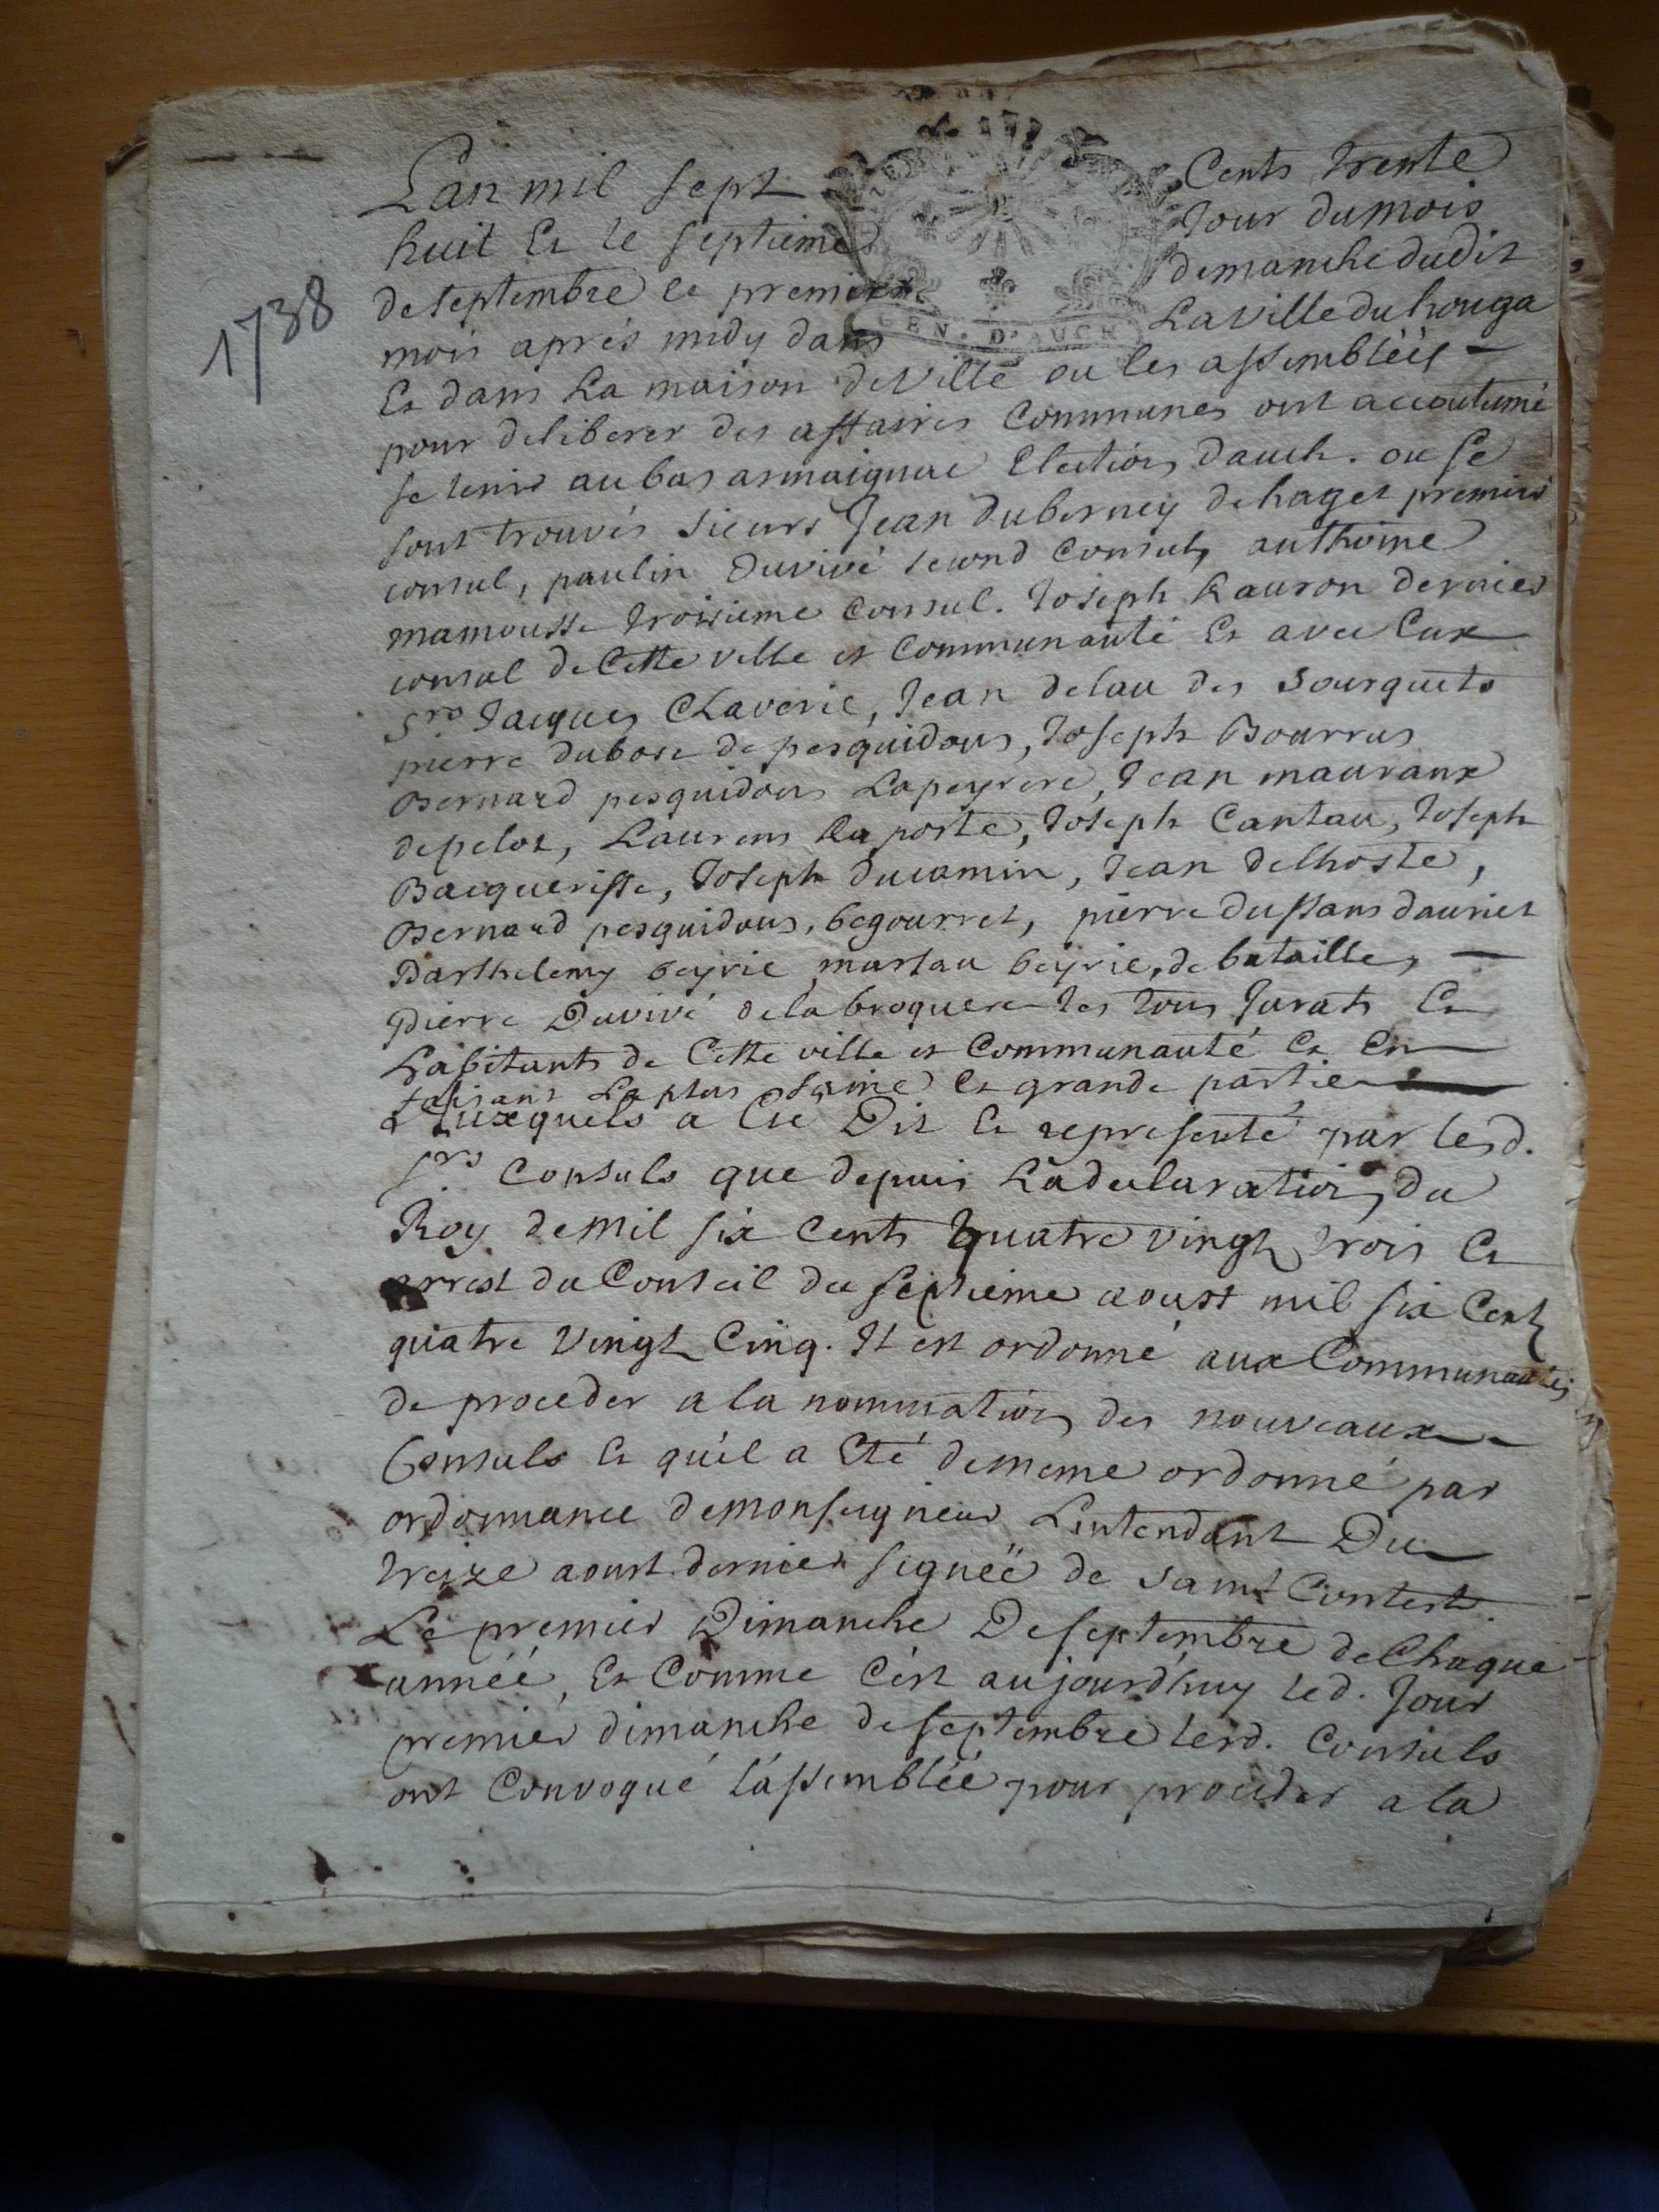 1738
Lan mil sept Cents trente
huit Et le septieme Jour du mois
de septembre le premier dimanche dudit
mois aprés midy dans La ville du houga
Et dans La maison de ville ou les assemblééś
pour deliberer des affaires Communes ont accoutumé
se tenir au bas armaignac Election dauch. ou se
sont trouvés sieurs Jean duberney de haget premier
consul, paulin Duvivé second Consul, anthoine
mamousse troisieme Consul. Joseph Lauron dernier
consul de Cette ville et Communauté Et avec Eux
Srs Jacques Claverie, Jean delau des Sourquets
pierre dubosc de pesquidous, Joseph Bourrus
Bernard pesquidous Lapeyrere, Jean mauranx
depelot, Laurens Laporte, Joseph Cantau, Joseph
Bacquerisse, Joseph ducamin, Jean delhoste,
Bernard pesquidous, begourret, pierre dussans dauriet
Barthelemy beyrie martau beyrie, de bataille,
Pierre Duvivé de labroquere tous Jurats Et
habitants de Cette ville et Communauté Et En
faisant La plus saine Et grande partie
auxquels a Eté Dit Et representé par lesd.
Srs Consuls que depuis La declaration du
Roy de mil six Cents quatre vingt trois Et
arrest du Conseil du septieme aoust mil six Cent
quatre vingt Cinq. Il est ordonné aux Communautés
de proceder a la nommination des nouveaux
Consuls Et qu'il a Eté de meme ordonné par
ordonnance de monseigneur Lintendant Du
treize aoust dernier signéé de saint Contest.
Le premier Dimanche De septembre de Chaque
annéé, Et Comme C'est aujourd'huy led. Jour
premier dimanche de septembre lesd. Consuls
ont Convoqué l'assembléé pour proceder a la
GEN. D'AUCH